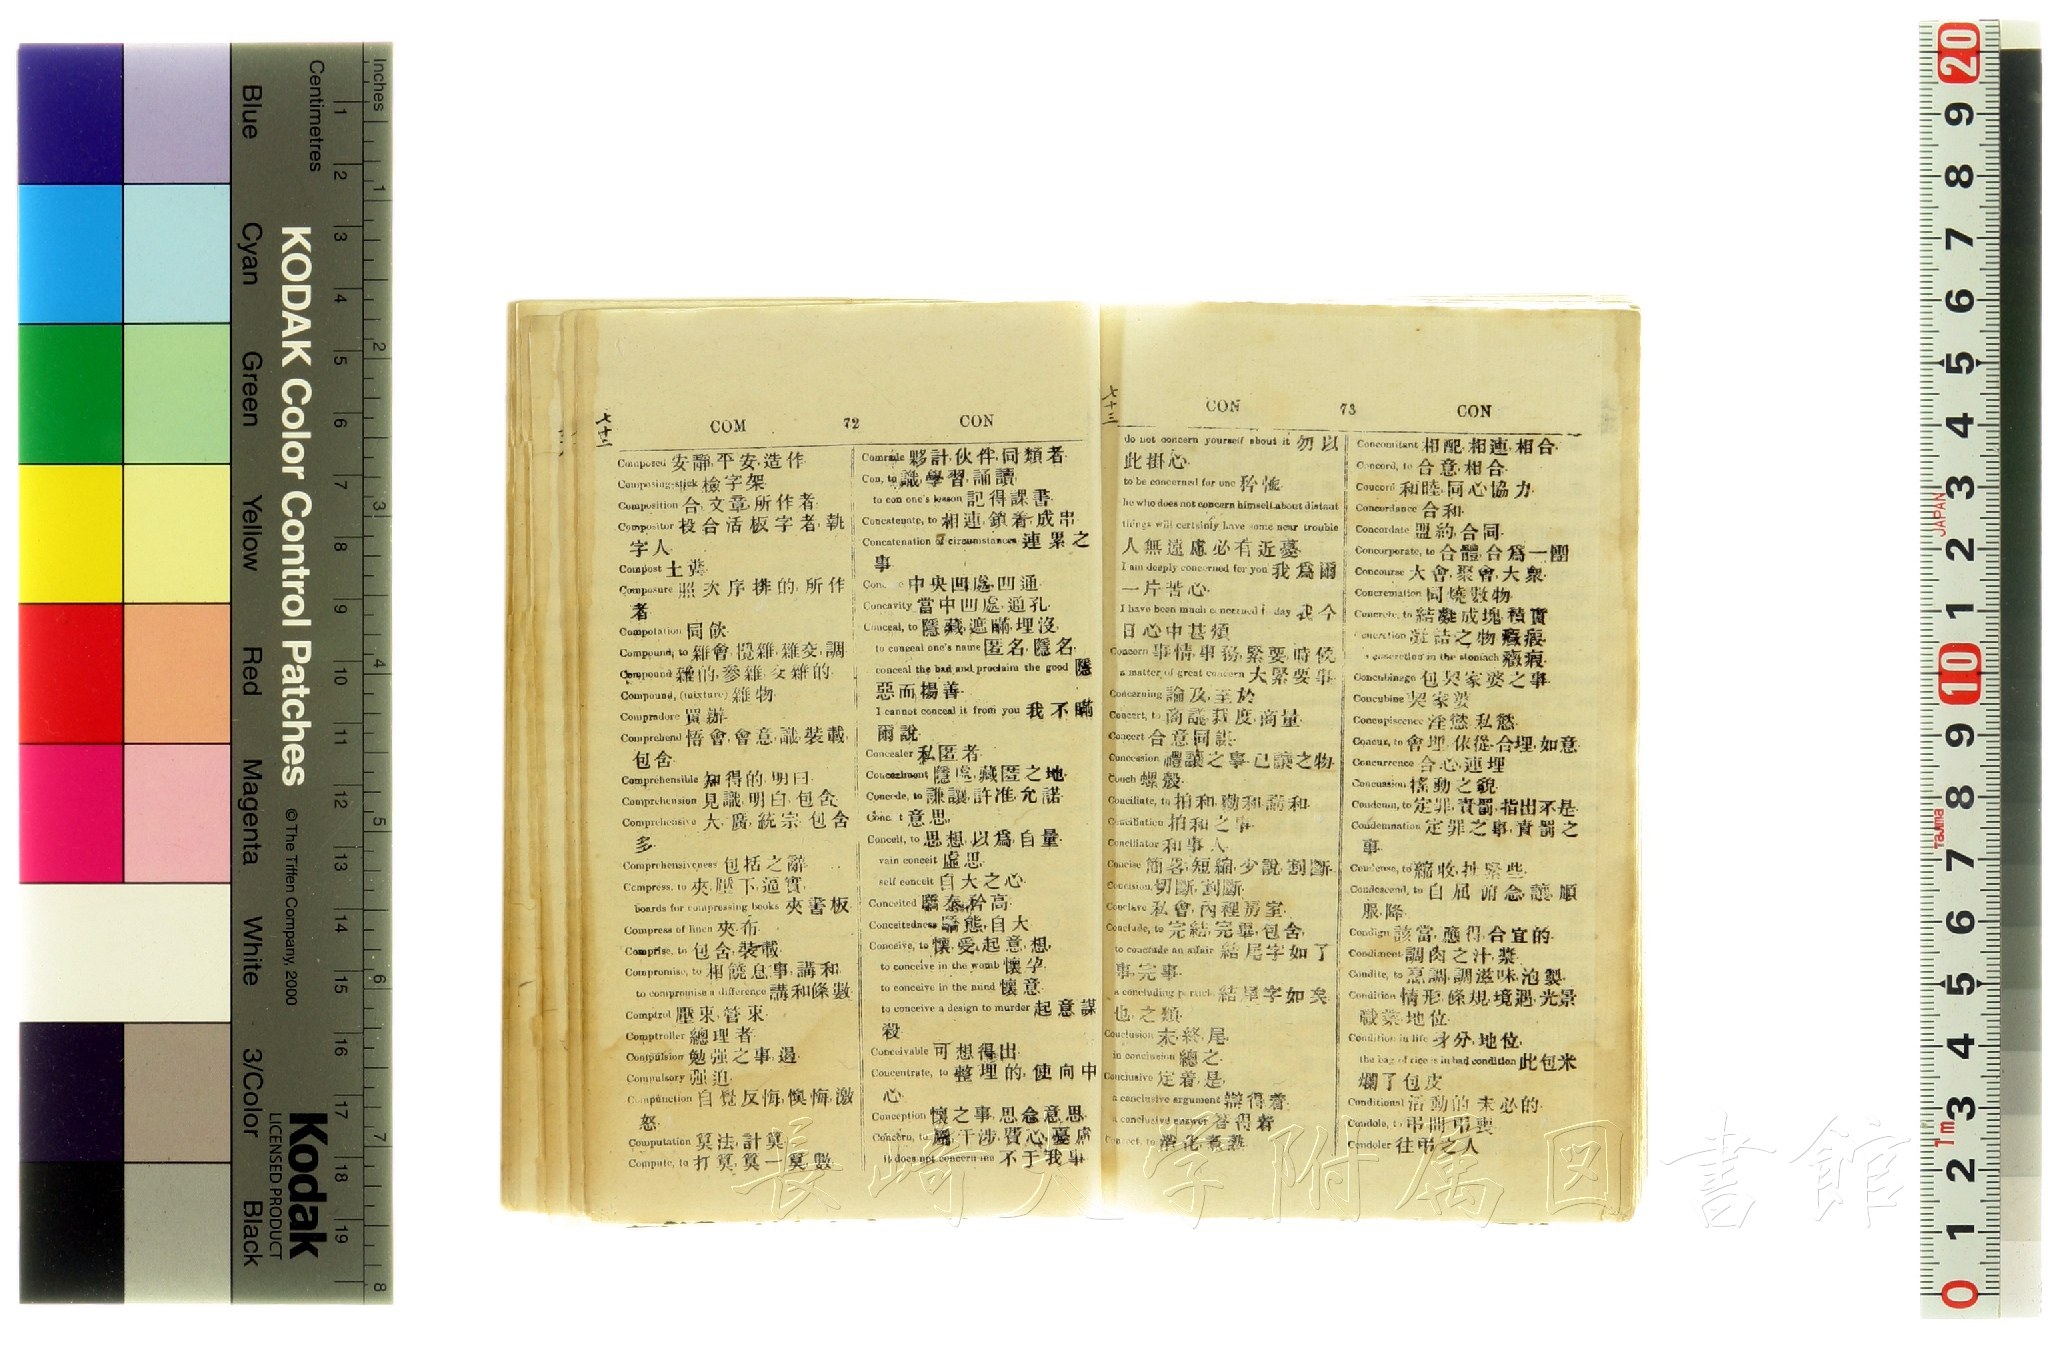 Inches
Centimetres
Blue
Cyan
Green
Yellow
Red
Magenta
White
3/Color
Black
KODAK Color Control Patches
© The Tiffen Company, 2000
Kodak
LICENSED PRODUCT
七十二
COM 72 CON
Composed 安靜,平安,造作
Composing-stick 檢字架
Composition 合,文章,所作者
Compositor 投合活板字者,執
字人
Compost 土糞
Composure 照次序排的,所作
者
Compotation 同飲
Compound, to 雜會,攪雜,雜交,調
Compound 雜的,參雜,交雜的
Compound, (mixture) 雜物
Compradore 買辦
Comprehend 悟會,會意,識,裝載,
包含
Comprehensible 知得的,明白
Comprehension 見識,明白,包含
Comprehensive 大,廣,統宗,包含
多
Comprehensiveness 包括之辭
Compress, to 夾,壓下,逼實
boards for compressing books 夾書板
Compress of linen 夾布
Comprise, to 包含,裝載
Compromise, to 相饒息事,講和
to compromise a difference 講和條數
Comptrol 壓束,管束
Comptroller 總理者
Compulsion 勉强之事,逼
Compulsory 强迫
Compunction 自覺反悔,懊悔,激
怒
Computation 算法,計算
Compute, to 打算,算一算數
Comrade 夥計,伙伴,同類者
Con, to 識,學習,誦讀
to con one's lesson 記得課書
Concatenate, to 相連,鎖着,成串
Concatenation of circumstances 連累之
事
中央凹處,凹通
Concavity 當中凹處,通孔
Conceal, to 隱藏,遮瞞,埋沒
to conceal one's name 匿名,隱名
conceal the bad and proclaim the good 隱
惡而揚善
I cannot conceal it from you 我不瞞
爾說
Concealer 私匿者
Concealment 隱處,藏匿之地
Concede, to 謙讓,許准,允諾
意思
Conceit, to 思想,以爲,自量
vain conceit 虛思
self conceit 自大之心
Conceited 驕泰,矜高
Conceitedness 驕態,自大
Conceive, to 懷,愛,起意,想
to conceive in the womb 懷孕
to conceive in the mind 懷意
to conceive a design to murder 起意謀
殺
Conceivable 可想得出
Concentrate, to 整理的,使向中
心
Conception 懷之事,思念,意思
Concern, to 屬,干涉,費心,憂慮
It does not concern me 不干我事
七十三
CON 73 CON
do not concern yourself about it 勿以
此掛心
to be concerned for one 矜恤
he who does not concern himself about distant
things will certainly have some near trouble
人無遠慮必有近憂
I am deeply concerned for you 我爲爾
一片苦心
I have been much concerned to day 我今
日心中甚煩
Concern 事情,事務,緊要,時候
a matter of great concern 大緊要事
Concerning 論及,至於
Concert, to 商議,裁度,商量
Concert 合意,同謀
Concession 禮讓之事,已讓之物
Conch 螺殼
Conciliate, to 拍和,勸和,講和
Conciliation 拍和之事
Conciliator 和事人
Concise 簡畧,短縮,少說,割斷
Concision 切斷,割斷
Conclave 私會,內裡房室
Conclude, to 完結,完畢,包含
to conclude an affair 結尾字如了
事完事
a concluding particle 結尾字如矣
也之類
Conclusion 末,終,尾
in conclusion 總之
Conclusive 定着,是
a conclusive argument 辯得着
a conclusive answer 答得着
Concomitant 相配,相連,相合
Concord, to 合意,相合
Concord 和睦,同心協力
Concordance 合和
Concordate 盟約,合同
Concorporate, to 合體,合爲一團
Concourse 大會,聚會,大衆
Concremation 同燒數物
Concrete, to 結,成塊,積實
Concretion 凝結之物,癥瘕
a concretion in the stomach 癥瘕
Concubinage 包契家婆之事
Concubine 契家婆
Concupiscence 淫慾,私慾
Concur, to 會埋,依從,合埋,如意
Concurrence 合心,連埋
Concussion 搖動之貌
Condemn, to 定罪,責罰,指出不是
Condemnation 定罪之事,責罰之
事
Condense, to 縮收,扯緊些
Condescend, to 自屈,俯念,讓,順
服,降
Condign 該當,應得,合宜的
Condiment 調肉之汁,漿
Condite, to 烹調,調滋味,泡製
Condition 情形,條規,境遇,光景
職業,地位
Condition in life 身分,地位
the bag of rice is in bad condition 此包米
爛了包皮
Conditional 活動的,未必的
Condole, to 弔問,弔喪
Condoler 往弔之人
長崎大学附属図書館
JAPAN
Tajima
1m